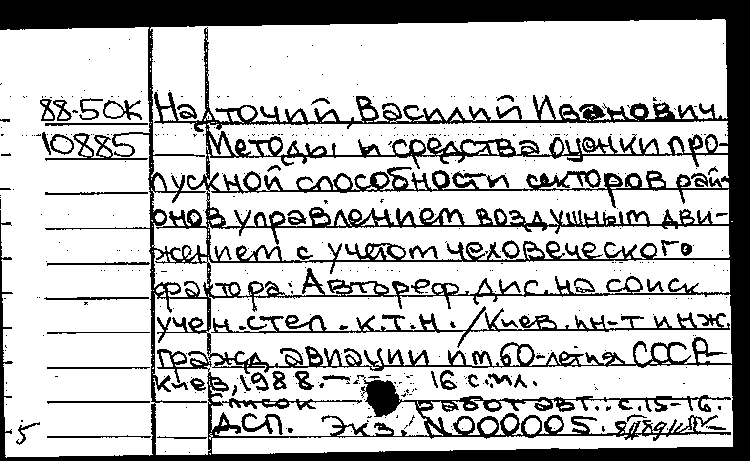 88-50К Надточий, Василий Иванович.
10885 Методы и средства оценки про-
пускной способности секторов рай-
онов управлением воздушным дви-
жением с учетом человеческого
фактора: Автореф. дис. на соиск.
учен. степ. к.т.н. / Киев. ин-т инж.
гражд. авиации им. 60-летия СССР.-
Киев, 1988. - 16 с. ил.
Список работ авт.: с. 15-16.
5 ДСП. Экз. N000005.